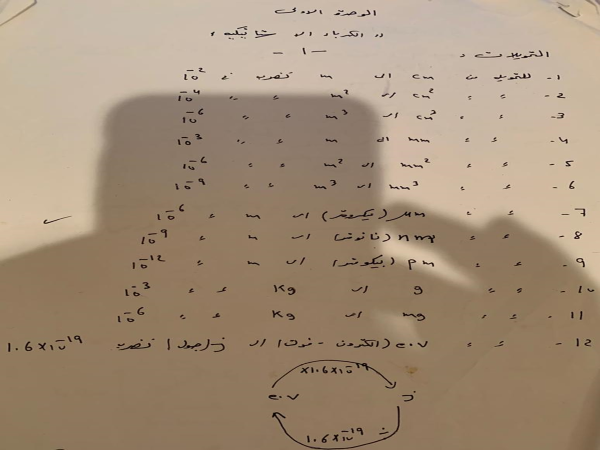 الوحدة الاولى
(( الكهرباء الساكنة ))
- ١ -
التحويلات :
1- للتحويل من cm الى m نضرب في 10⁻²
2- ⸗ ⸗ cm² الى m² ⸗ ⸗ 10⁻⁴
3- ⸗ ⸗ cm³ الى m³ ⸗ ⸗ 10⁻⁶
4- ⸗ ⸗ mm الى m ⸗ ⸗ 10⁻³
5- ⸗ ⸗ mm² الى m² ⸗ ⸗ 10⁻⁶
6- ⸗ ⸗ mm³ الى m³ ⸗ ⸗ 10⁻⁹
7- ⸗ ⸗ μm (ميكرومتر) الى m ⸗ 10⁻⁶
8- ⸗ ⸗ nm (نانومتر) الى m ⸗ 10⁻⁹
9- ⸗ ⸗ pm (بيكومتر) الى m ⸗ 10⁻¹²
10- ⸗ ⸗ g الى Kg ⸗ ⸗ 10⁻³
11- ⸗ ⸗ mg الى Kg ⸗ ⸗ 10⁻⁶
12- ⸗ ⸗ e.v (الكترون - فولت) الى J (جول) نضرب 1.6×10⁻¹⁹
×1.6×10⁻¹⁹
e.v J
÷ 1.6×10⁻¹⁹